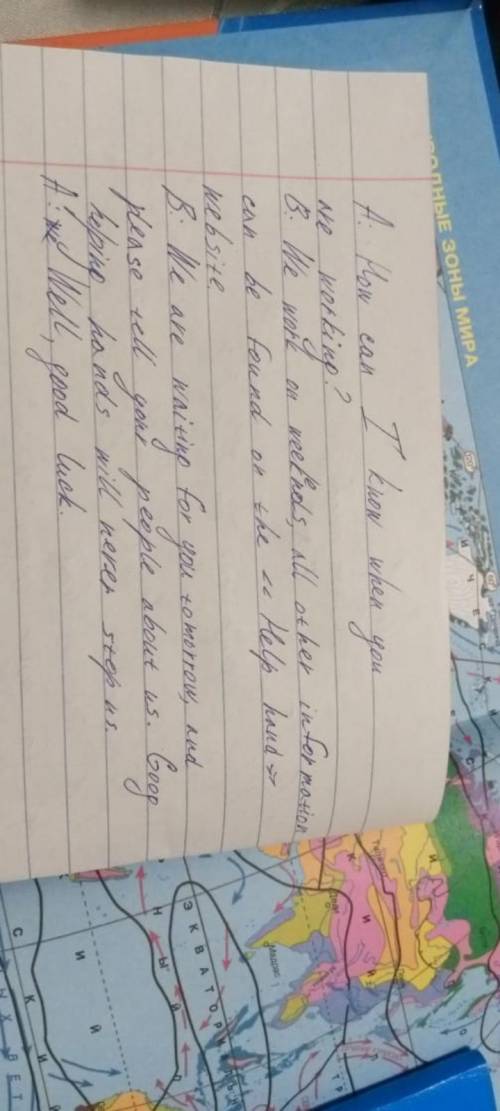 A: How can I know when you
are working?
B: We work on weekends, all other information
can be found on the << Help hand >>
website.
B: We are waiting for you tomorrow, and
please tell your people about us. Goog
helping hands will never stop us.
A: Well, good luck.
РОДНЫЕ ЗОНЫ МИРА
ЭКВАТОРИ
Мадрас